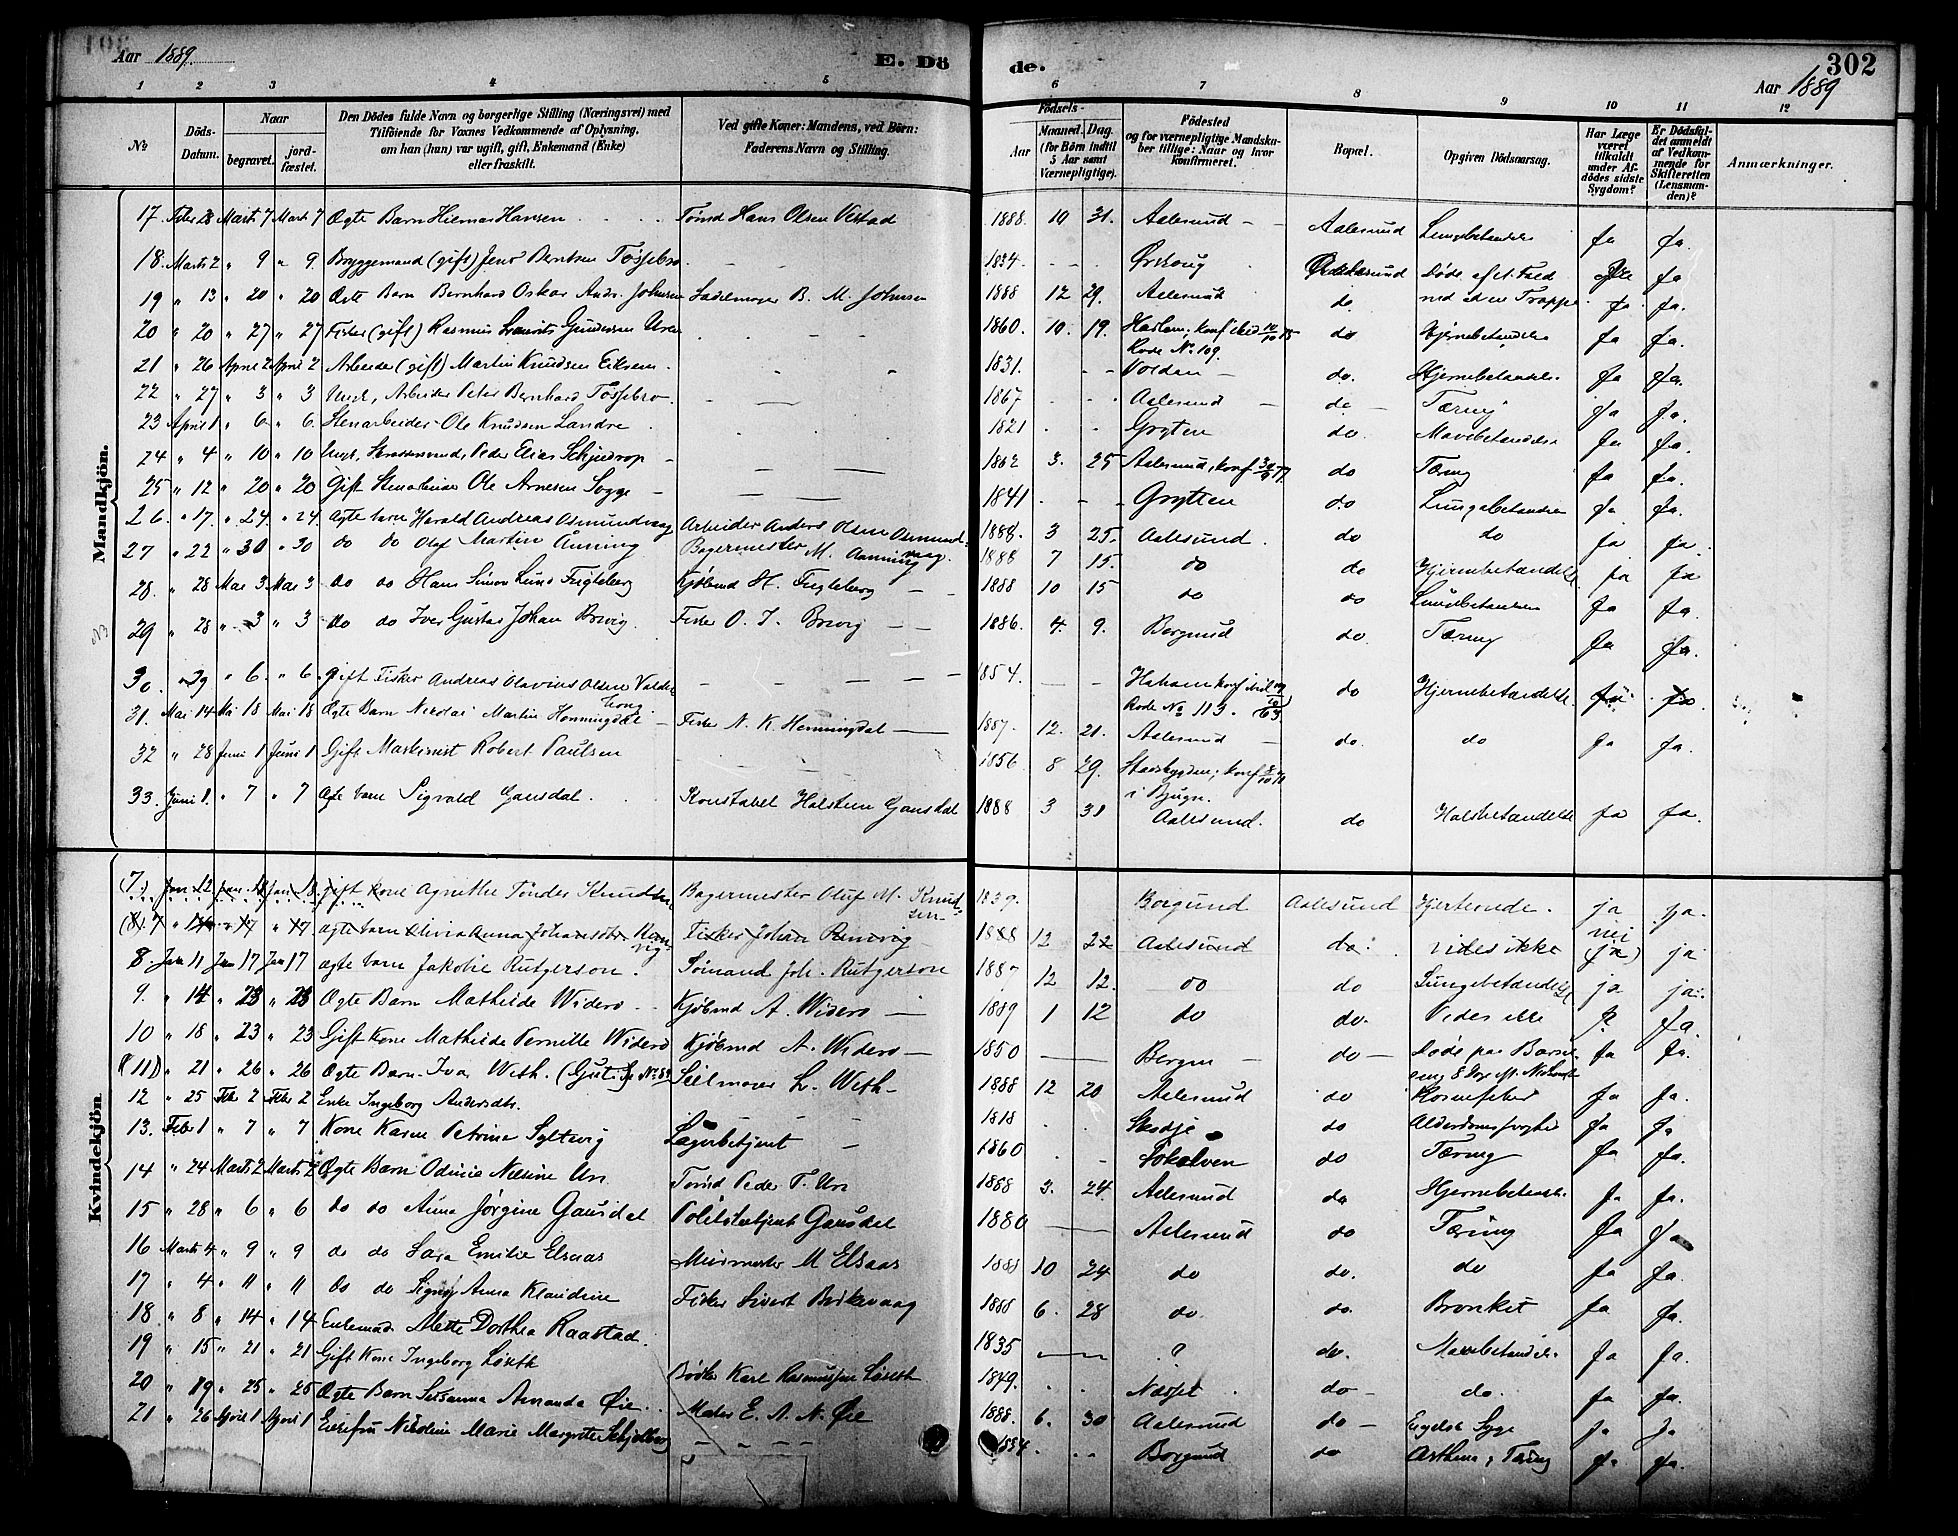 Aar 1889.
E. Dö
de.
302
Aar 1889
1 2 3 4 5 6 7 8 9 10 11 12
No
Döds-Datum.
Naar
begravet.
jord-fæstet.
Den Dödes fulde Navn og borgerlige Stilling (Næringsvei) med
Tilföiende for Voxnes Vedkommende af Oplysning,
om han (hun) var ugift, gift, Enkemand (Enke)
eller fraskilt.
Ved gifte Koner: Mandens, ved Börn:
Faderens Navn og Stilling.
Födsels-
Aar
Maaned. Dag.
(for Börn indtil
5 Aar samt
Værnepligtige).
Födested
og for værnepligtige Mandska-
ber tillige: Naar og hvor
konfirmeret.
Bopæl.
Opgiven Dödsaarsag.
Har Læge
været
tilkaldt
under Af-
dödes sidste
Sygdom?
Er Dödsfal-
det anmeldt
af Vedkom-
mende for
Skifteretten
(Lensman-
den)?
Anmærkninger.
Mandkjön.
17. Febr 28 Marts 7 Marts 7 Ægte Barn Hilmar Hansen Tømd Hans Olsen Vestad 1888 10 31. Aalesund Aalesund Lungebetændelse ja ja.
18. Marts 2 " 9 " 9. Bryggemand (gift) Jens Berntsen Tøssebro 1834 Ørskoug Aalesund Døde eft. et Fald ja
19 " 13 " 20 " 20 Ægte Barn Bernhard Oskar Andr. Johnsen Sadelmager B. M. Johnsen 1888 12 29. Aalesund do. ned af en Trappe ja ja.
20 " 20 " 27 " 27 Fisker (gift) Rasmus Laurits Gundersen Uren 1860. 10. 19. Haram. konf do Hjernebetændelse ja ja.
Rode No 109.
21 " 26 April 2 April 2 Arbeider (gift) Martin Knudsen Eiksem 1831. Volden do. Hjernebetændelse ja ja.
22 " 27 " 3 " 3 Ungk, Arbeider Peter Bernhard Tøssebro 1867 Aalesund do Tæring ja ja.
23 April 1 " 6 " 6. Stenarbeider Ole Knudsen Landre 1821 Gryten do. Mavebetændelse ja ja.
24 " 4 " 10 " 10 Ungk, Peder Elias Schjedrop 1862 3. 25 Aalesund, konf do Tæring ja ja.
25 " 12 " 20 " 20 Gift Stenarbeider Ole Arnesen Sogge 1841 Grytten do Lungebetændelse ja ja.
26. " 17. " 24. " 24. Ægte barn Harald Andreas Osmundvaag Arbeider Anders Olsen Osmundvaag. 1888. 3 25. Aalesund. do do ja ja.
27 " 22 " 30 " 30 do do Olaf Martin Anning Bagermester M. Aanning 1888 7 15. do do Hjernebetændelse ja ja
28. " 28 Mai 3 Mai 3 do do Hans Simon Lund Fugleberg Kjøbmd H. Fugleberg 1888 10 15 do do Lungebetændelse ja ja.
29 " 28 " 3 " 3 do do Iver Gustav Johan Brevig Fisker O. J. Brevig 1886. 4. 9. Borgund do. Tæring ja ja.
30. " 29 " 6. " 6. gift Fisker Andreas Olavius Olsen Valder 1854. konf do Hjernebetændelse
Rode No 113.
31. Mai 14 Mai 18 Mai 18 Ægte Barn Nikolai Martin Henningdal Fisker N. K. Henningdal 1887. 12. 21. Aalesund do. do ja ja.
32 " 28 Juni 1 Juni 1 Gift Maskinist Robert Paulsen 1856 8 29. Stadsbygden; konf
i Bjugn.
33. Juni 1. " 7 " 7 Ægte barn Sigvald Gausdal. Konstabel Halsten Gausdal 1888 3 31 Aalesund. do Halsbetændelse ja ja.
Kvindekjön.
(7.) Jan 12. Jan 18 Jan 18. gift kone Agnethe Tønder Knudsen Bagermester Oluf M. Knudsen 1839. Borgund Aalesund Hjertesyde. ja ja.
(8). 7 " 17 " 17. ægte barn Olivia Anna Johansdtr Fisker Johan 1888 12 22 Aalesund do. vides ikke nei (ja) ja
8. Jan 11 Jan 17 Jan 17 ægte barn Jakobie Rutgerson. Sømand Joh. Rutgerson 1887 12 12. do do Lungebetændelse ja ja.
9. " 14 " 23 " 23 Ægte Barn Mathilde Widerø Kjøbmd A. Widerø 1889 1 12 do do. Vides ikke ja.
10 " 18 " 23 " 23 Gift Kone Mathilde Pernille Widerø Kjøbmd A. Widerø 1850 Bergen do Døde paa Barse- ja ja.
(11) " 21 " 26 " 26 Ægte Barn Ivar With. Seilmager L. With 1888 12 20 Aalesund do ja ja.
12 " 25 Feb 2 Feb 2 Enke Ingeborg Andersdtr. 1818 Skodje do Alderdomssvaghed ja ja
13. Febr 1 " 7 " 7 Kone Karen Petrine Syltevig Lagerbetjent 1860 Søkelven do Tæring ja ja.
14 " 24 Marts 2 Marts 2 Ægte Barn Odinie Nilsine Urs Tømd Peder T. Urs 1888 3. 24. Aalesund do Hjernebetænd. ja ja.
15 " 28 " 6 " 6 do do Anna Jørgine Gausdal Politibetjent Gausdal 1880 Aalesund do Tæring ja ja
16 Marts 4 " 9 " 9 do do Sara Emilie Elsaas Muirmester M Elsaas 1888 10 24 do do. do ja ja.
17 " 4 " 11 " 11 do do Signy Anna Klaudine Fisker Sivert 1888 6. 28 do. do. Bronkit ja ja.
18 " 8 " 14 " 14 Mette Dorthea Raastad. 1835 ? do. Mavebetændelse ja ja.
19 " 15 " 21 " 21 Gift Kone Ingeborg Løseth Bødker Karl Rasmussen Løseth 1849. Nesset do do. ja ja.
20 " 19 " 25 " 25 Ægte Barn Susanna Amanda Øie Maler E. A. N. Øie 1888. 6. 30 Aalesund do Engelsk Syge ja ja
21 " 26 April 1 April 1 Nikoline Marie Margrete Schjelberg 1834 Borgund do Asthma, Tæring ja ja.